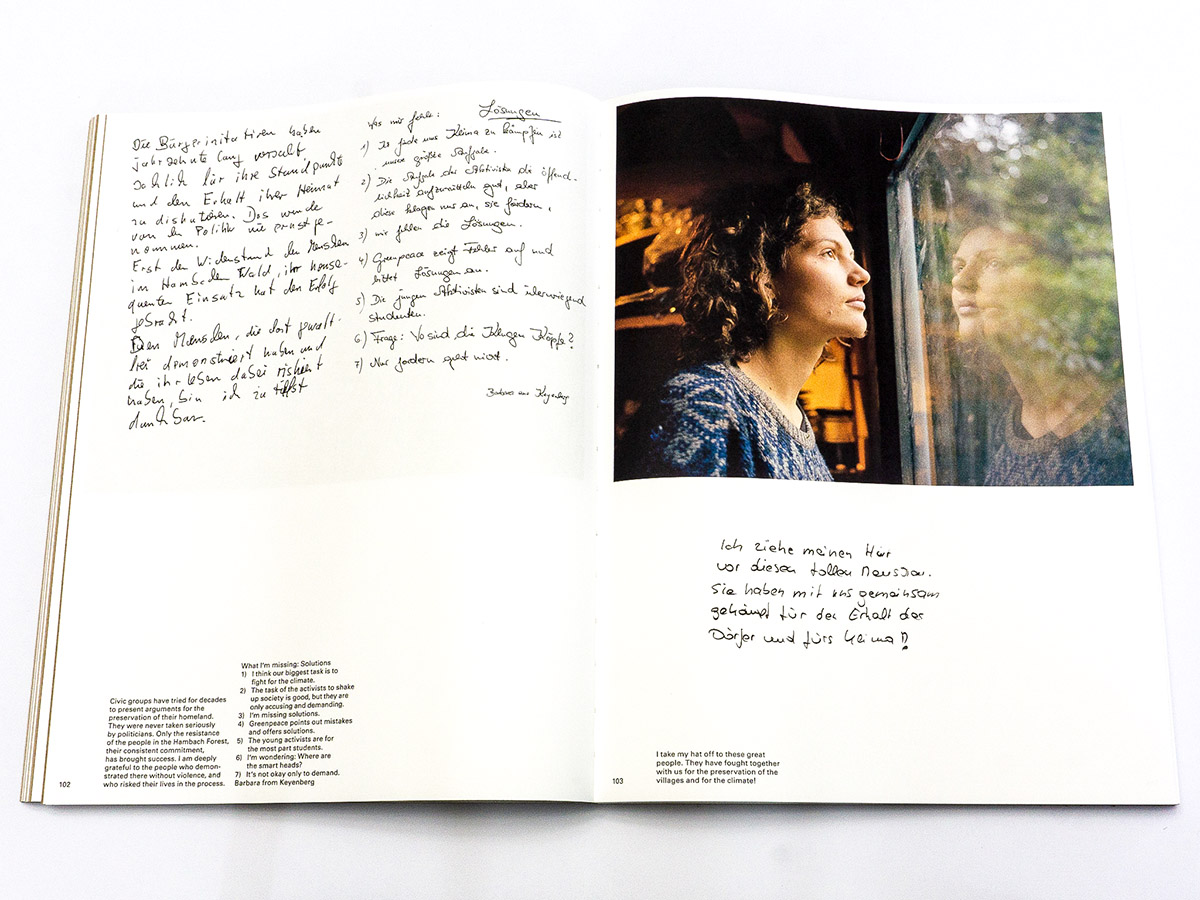 Die Bürgerinitativen haben
jahrzehnte lang versucht
sachlich für ihre Standpunkte
und den Erhalt ihrer Heimat
zu diskutieren. Das wurde
von der Politik nie ernst ge-
nommen.
Erst der Widerstand der Menschen
im Hambacher Wald, ihr konse-
quenten Einsatz hat den Erfolg
gebracht.
Den Menschen, die dort gewalt-
frei demonstriert haben und
die ihr leben dabei riskiert
haben, bin ich zu tiefst
dankbar.
Was mir fehlt: Lösungen
1) Ich finde ums Klima zu kämpfen ist
unsere größte Aufgabe.
2) Die Aufgabe der Aktivisten die öffent-
lichkeit aufzurütteln gut, aber
diese klagen nur an, sie fordern,
3) mir fehlen die Lösungen.
4) Greenpeace zeigt Fehler auf und
bietet Lösungen an.
5) Die jungen Aktivisten sind überwiegend
studenten.
6) Frage: Wo sind die Klugen Köpfe?
7) Nur fordern geht nicht.
Barbara aus Keyenberg
Ich ziehe meinen Hut
vor diesen tollen Menschen.
Sie haben mit uns gemeinsam
gekämpft für den Erhalt der
Dörfer und fürs Klima!
Civic groups have tried for decades
to present arguments for the
preservation of their homeland.
They were never taken seriously
by politicians. Only the resistance
of the people in the Hambach Forest,
their consistent commitment,
has brought success. I am deeply
grateful to the people who demon-
strated there without violence, and
who risked their lives in the process.
What I'm missing: Solutions
1) I think our biggest task is to
fight for the climate.
2) The task of the activists to shake
up society is good, but they are
only accusing and demanding.
3) I'm missing solutions.
4) Greenpeace points out mistakes
and offers solutions.
5) The young activists are for
the most part students.
6) I'm wondering: Where are
the smart heads?
7) It's not okay only to demand.
Barbara from Keyenberg
102
I take my hat off to these great
people. They have fought together
with us for the preservation of the
villages and for the climate!
103